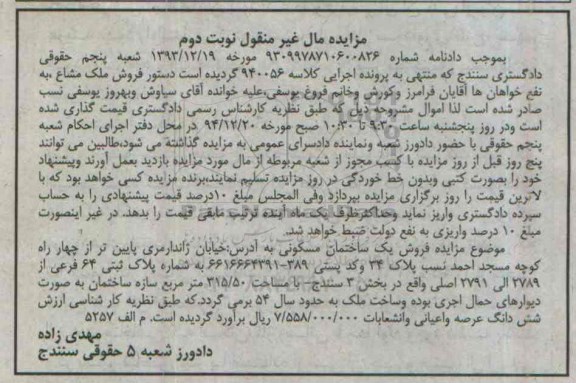 مزایده مال غیر منقول نوبت دوم
بموجب دادنامه شماره ۹۳۰۹۹۷۸۷۱۰۶۰۰۸۲۶ مورخه ۱۳۹۳/۱۲/۱۹ شعبه پنجم حقوقی
دادگستری سنندج که منتهی به پرونده اجرایی کلاسه ۹۴۰۰۵۶ گردیده است دستور فروش ملک مشاع ،به
نفع خواهان ها آقایان فرامرز وکورش وخانم فروغ یوسفی،علیه خوانده آقای سیاوش وبهروز یوسفی نسب
صادر شده است لذا اموال مشروحه ذیل که طبق نظریه کارشناس رسمی دادگستری قیمت گذاری شده
است ودر روز پنجشنبه ساعت ۹:۳۰ تا ۱۰:۳۰ صبح مورخه ۹۴/۱۲/۲۰ در محل دفتر اجرای احکام شعبه
پنجم حقوقی با حضور دادورز شعبه ونماینده دادسرای عمومی به مزایده گذاشته می شود،طالبین می توانند
پنج روز قبل از روز مزایده با کسب مجوز از شعبه مربوطه از مال مورد مزایده بازدید بعمل آورند وپیشنهاد
خود را بصورت کتبی وبدون خط خوردگی در روز مزایده تسلیم نمایند،برنده مزایده کسی خواهد بود که با
لاترین قیمت را روز برگزاری مزایده بپردازد وفی المجلس مبلغ ۱۰درصد قیمت پیشنهادی را به حساب
سپرده دادگستری واریز نماید وحداکثرظرف یک ماه آینده ترتیب مابقی قیمت را بدهد. در غیر اینصورت
مبلغ ۱۰ درصد واریزی به نفع دولت ضبط خواهد شد.
موضوع مزایده فروش یک ساختمان مسکونی به آدرس:خیابان ژاندارمری پایین تر از چهار راه
کوچه مسجد احمد نسب پلاک ۳۴ وکد پستی ۳۸۹-۶۶۱۶۶۶۴۳۹۱ به شماره پلاک ثبتی ۶۴ فرعی از
۲۷۸۹ الی ۲۷۹۱ اصلی واقع در بخش ۳ سنندج با مساحت ۳۱۵/۵۰ متر مربع سازه ساختمان به صورت
دیوارهای حمال اجری بوده وساخت ملک به حدود سال ۵۴ برمی گردد.که طبق نظریه کار شناسی ارزش
شش دانگ عرصه واعیانی وانشعابات ۷/۵۵۸/۰۰۰/۰۰۰ ریال برآورد گردیده است. م الف ۵۲۵۷
مهدی زاده
دادورز شعبه ۵ حقوقی سنندج